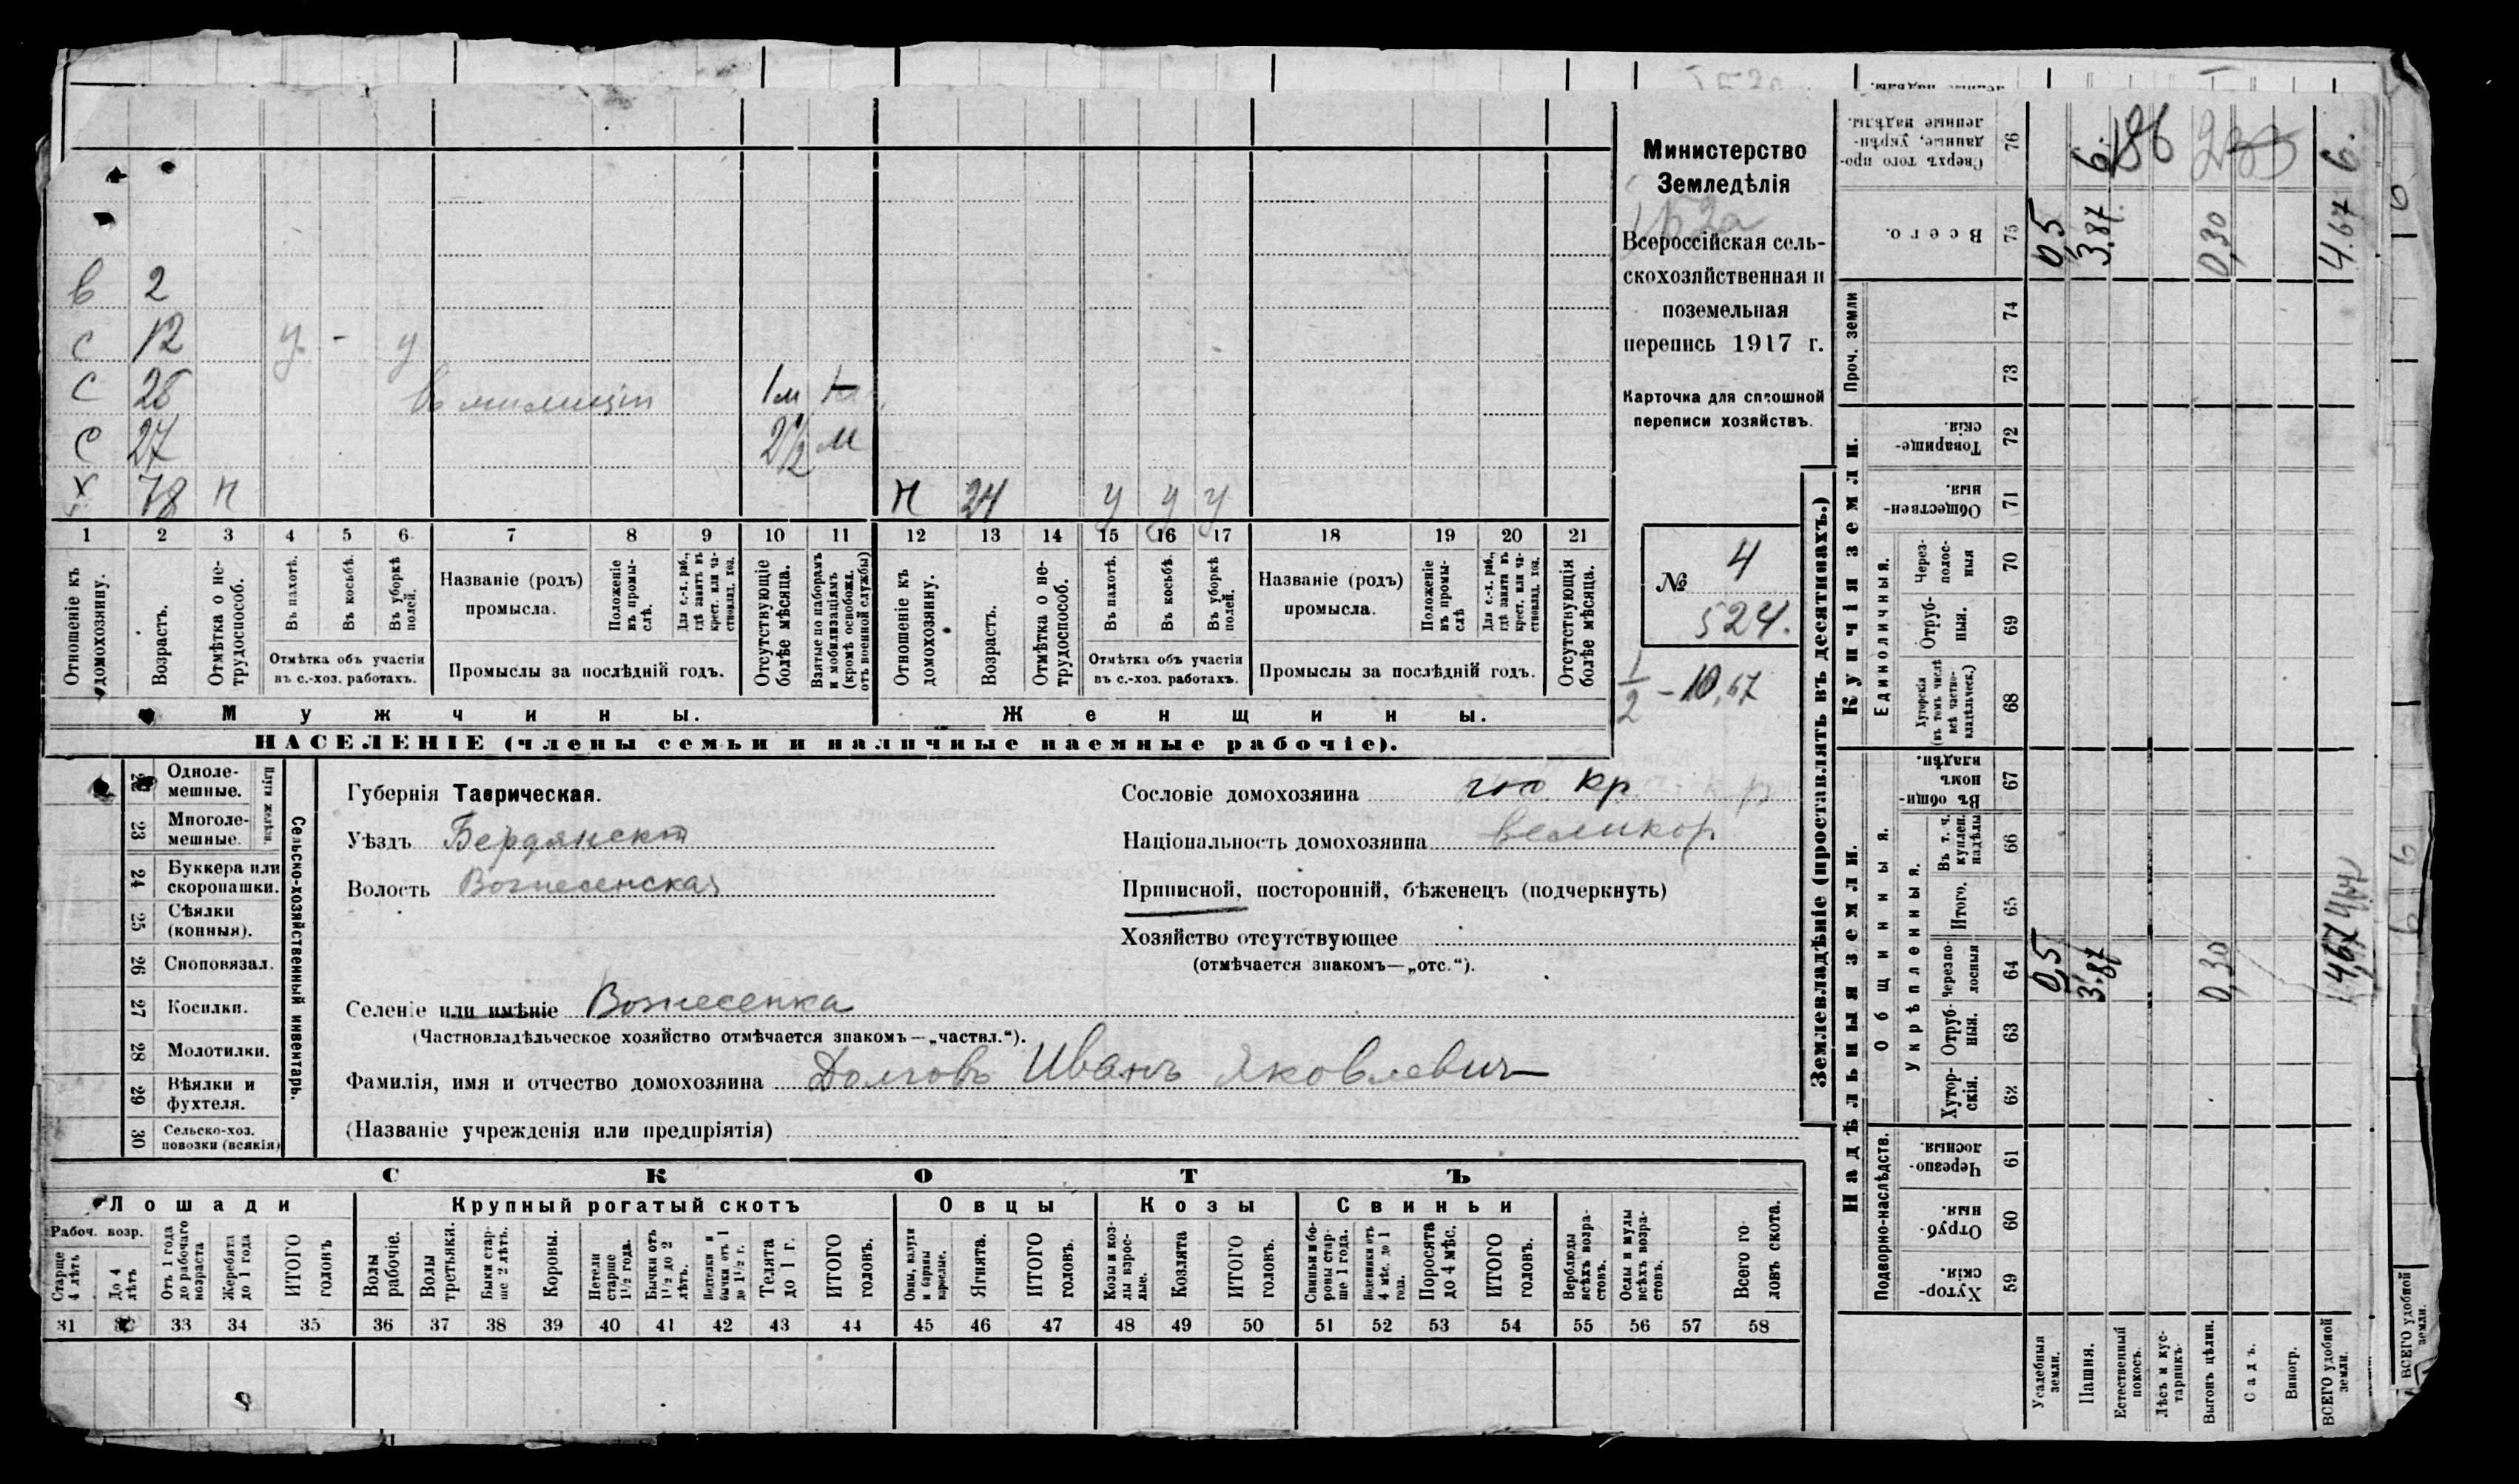 Министерство
Земледѣлія
Всероссійская сель-
скохозяйственная и
поземельная
перепись 1917 г.
Карточка для сплошной
переписи хозяйствъ.
№ 4
524.
1/2 – 10,67
в 2
с 12 у - у
с 26 в милиціи 1 м
с 27 2 1/2 м
х 78 н н 24 у у у
1 2 3 4 5 6 7 8 9 10 11 12 13 14 15 16 17 18 19 20 21
Отношеніе къ домохозяину.
Возрастъ.
Отмѣтка о не-трудоспособ.
Въ пахотѣ.
Въ косьбѣ.
Въ уборкѣ полей.
Отмѣтка объ участіи
въ с.-хоз. работахъ.
Названіе (родъ)
промысла.
Положеніе въ промы-слѣ.
Для с.-х. раб., гдѣ занятъ въ крест. или ча-стновлад. хоз.
Промыслы за послѣдній годъ.
Отсутствующіе болѣе мѣсяца.
Взятые по наборамъ и мобилизаціямъ (кромѣ освобожд. отъ военной службы)
Отношеніе къ домохозяину.
Возрастъ.
Отмѣтка о не-трудоспособ.
Въ пахотѣ.
Въ косьбѣ.
Въ уборкѣ полей.
Отмѣтка объ участіи
въ с.-хоз. работахъ.
Названіе (родъ)
промысла.
Положеніе въ промы-слѣ
Для с.-х. раб., гдѣ занята въ крест. или ча-стновлад. хоз.
Промыслы за послѣдній годъ.
Отсутствующія болѣе мѣсяца.
Мужчины.
Женщины.
НАСЕЛЕНІЕ (члены семьи и наличные наемные рабочіе).
Одноле-мешные.
23 Многоле-мешные.
24 Буккера или скоропашки.
25 Сѣялки (конныя).
26 Сноповязал.
27 Косилки.
28 Молотилки.
29 Вѣялки и фухтеля.
30 Сельско-хоз. повозки (всякія)
Сельско-хозяйственный инвентарь.
Губернія Таврическая.
Уѣздъ Бердянскт
Волость Вознесенская
Сословіе домохозяина кр.
Національность домохозяина великор.
Приписной, посторонній, бѣженецъ (подчеркнуть)
Хозяйство отсутствующее
(отмѣчается знакомъ—„отс.“).
Селеніе или имѣніе Вознесенка
(Частновладѣльческое хозяйство отмѣчается знакомъ—„частвл.“).
Фамилія, имя и отчество домохозяина Долговъ Иванъ Яковлевич
(Названіе учрежденія или предпріятія)
СКОТЪ
Лошади Крупный рогатый скотъ Овцы Козы Свиньи
Рабоч. возр.
Старше 4 лѣтъ
До 4 лѣтъ
Отъ 1 года до рабочаго возраста
Жеребята до 1 года
ИТОГО головъ
Волы рабочіе.
Волы третьяки.
Быки стар-ше 2 лѣтъ.
Коровы.
Нетели старше 1½ года.
Бычки отъ 1½ до 2 лѣтъ.
Нетелки и бычки отъ 1 до 1½ г.
Телята до 1 г.
ИТОГО головъ.
Овцы, валухи и бараны взрослые.
Ягнята.
ИТОГО головъ.
Козы и коз-лы взрос-лые.
Козлята
ИТОГО головъ.
Свиньи и бо-ровы стар-ше 1 года.
Подсвинки отъ 4 мѣс. до 1 года.
Поросята до 4 мѣс.
ИТОГО головъ.
Верблюды всѣхъ возра-стовъ.
Ослы и мулы всѣхъ возра-стовъ.
Всего го-ловъ скота.
31 33 34 35 36 37 38 39 40 41 42 43 44 45 46 47 48 49 50 51 52 53 54 55 56 57 58
Землевладѣніе (проставлять въ десятинахъ.)
Надѣльныя земли.
Купчія земли.
Проч. земли
Подворно-наслѣдств.
Общинныя.
Укрѣпленныя.
Единоличныя.
Сверхъ того про-данные, укрѣп-ленные надѣлы. 76
Всего. 75
74
73
Товарище-скія. 72
Обществен-ныя. 71
Через-полос-ныя 70
Отруб-ныя. 69
Хуторскія (въ томъ числѣ всѣ частно-владѣльческ.) 68
Въ общи-номъ владѣн. 67
Въ т. ч. куплен. надѣлы 66
Итого. 65
Черезпо-лосныя 64
Отруб-ныя. 63
Хутор-скія. 62
Черезпо-лосныя. 61
Отруб-ныя. 60
Хутор-скія. 59
Усадебныя земли. 0,5 0,5
Пашня. 3,87 3,87 6.
Естественный покосъ.
Лѣсъ и кус-тарникъ.
Выгонъ цѣлин. 0,30 0,30
Садъ.
Виногр.
ВСЕГО удобной земли. 4,67 4.67 6.
ВСЕГО удобной земли.